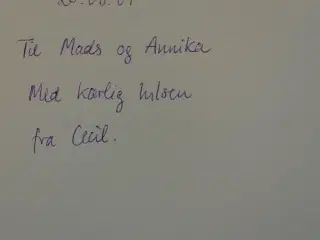 Til Mads og Annika
Med kærlig hilsen
fra Cecil.